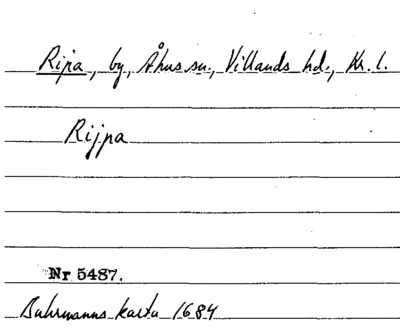 Ripa, by, Åhus sn., Villands hd., Kr. l.
Rijpa
Nr 5487.
Buhrmanns karta 1684